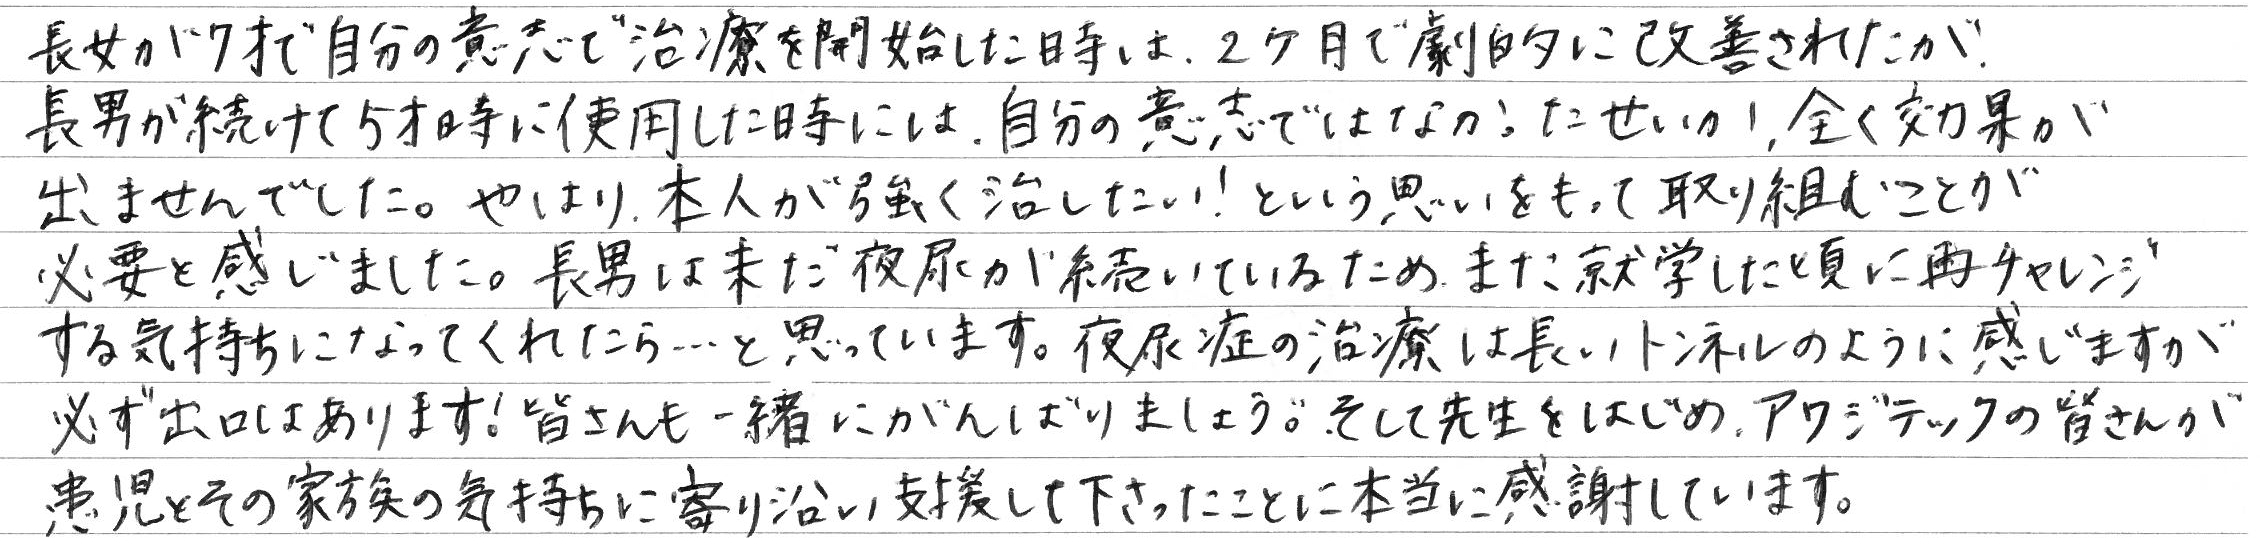 長女が7才で自分の意志で治療を開始した時は、2ケ月で劇的に改善されたが、
長男が続けて5才時に使用した時には、自分の意志ではなかったせいか、全く効果が
出ませんでした。やはり、本人が強く治したい!という思いをもって取り組むことが
必要と感じました。長男は未だ夜尿が続いているため、また就学した頃に再チャレンジ
する気持ちになってくれたら…と思っています。夜尿症の治療は長いトンネルのように感じますが
必ず出口はあります!皆さんも一緒にがんばりましょう。そして先生をはじめ、アワジテックの皆さんが
患児とその家族の気持ちに寄り沿い支援して下さったことに本当に感謝しています。